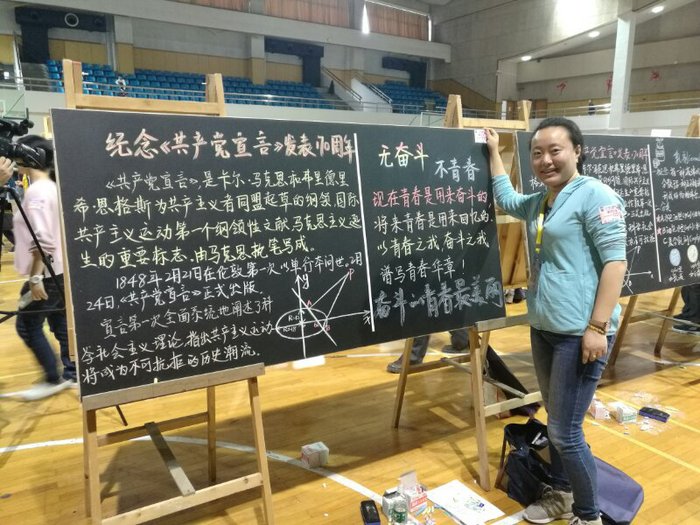 纪念《共产党宣言》发表170周年
《共产党宣言》是卡尔·马克思和弗里德里
希·恩格斯为共产主义者同盟起草的纲领,国际
共产主义运动第一个纲领性文献,马克思主义诞
生的重要标志。由马克思执笔写成。
1848年2月21日在伦敦第一次以单行本问世,2月
24日《共产党宣言》正式出版。
宣言第一次全面系统地阐述了科
学社会主义理论,指出共产主义运动
将成为不可抗拒的历史潮流。
无奋斗
不青春
现在青春是用来奋斗的
将来青春是用来回忆的
以青春之我,奋斗之我
谱写青春华章!
奋斗的青春最美丽
y
x